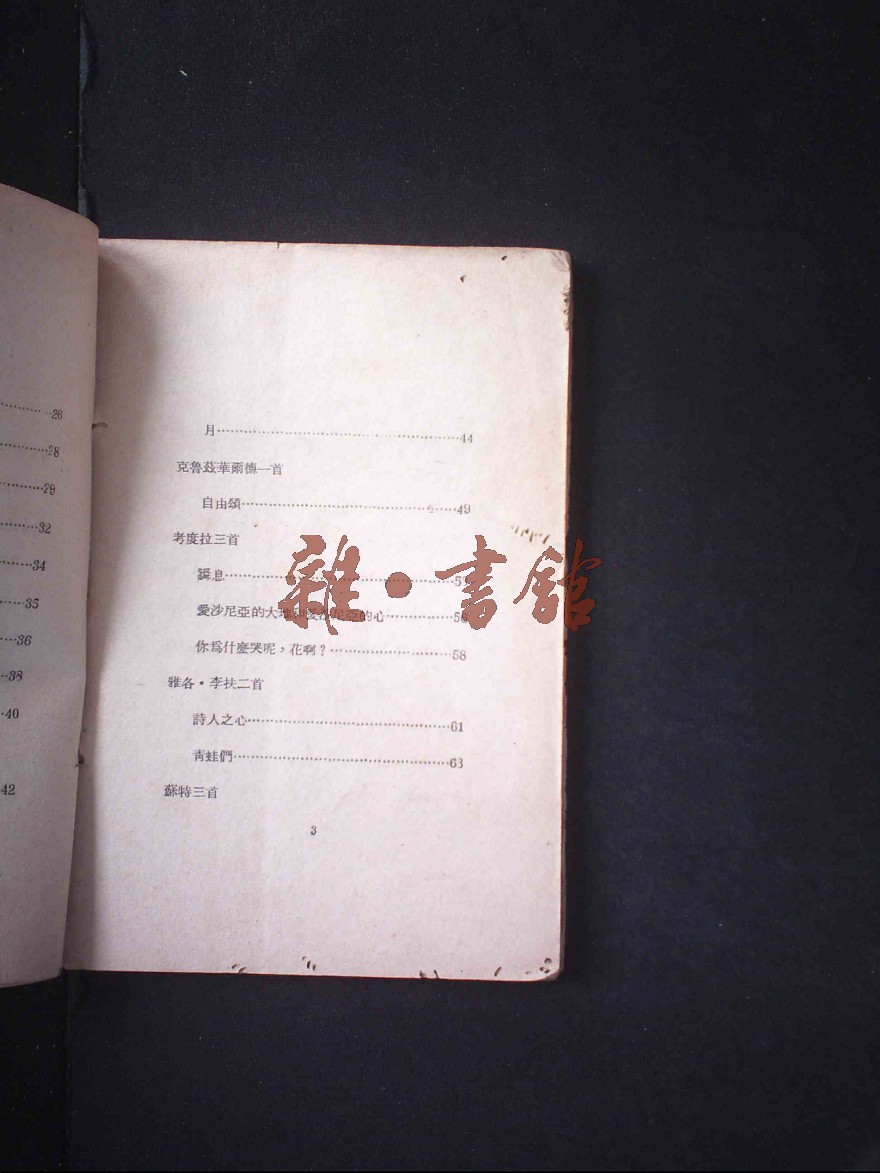 26
28
29
32
34
35
36
38
40
42
月 44
克魯茲華爾德一首
自由頌 49
考度拉三首
息
愛沙尼亞的大地和愛沙尼亞的心 56
你爲什麼哭呢，花啊？ 58
雅各·李扶二首
詩人之心 61
靑蛙們 63
蘇特三首
3
雜·書館